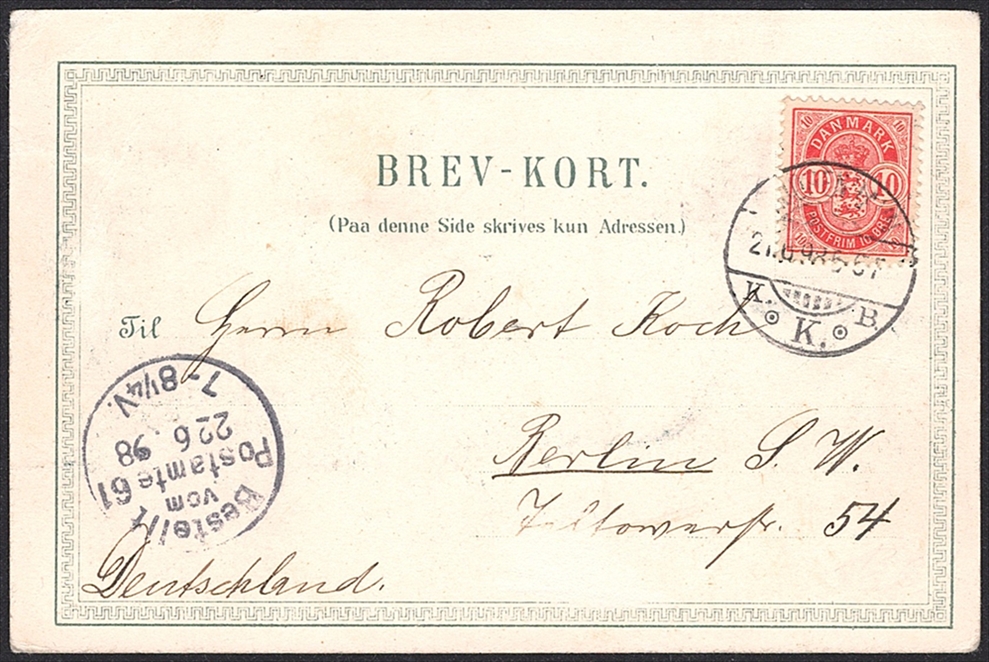 BREV-KORT.
(Paa denne Side skrives kun Adressen.)
DANMARK
10 10
POSTFRIM 10 ØRE
K. K. B.
Til Herrn Robert Koch
Berlin S. W.
Teltowerstr. 54
Deutschland.
Bestellt
vom
Postamte 61
22 6. 98
7-8¼V.